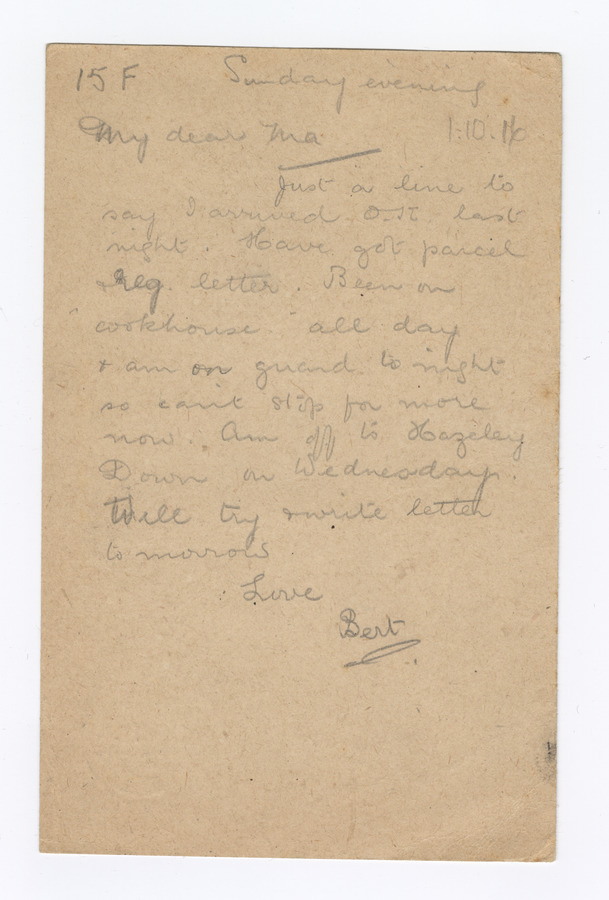 15 F Sunday evening
My dear Ma 1.10.16
Just a line to
say I arrived O.K. last
night. Have got parcel
& reg. letter. Been on
cookhouse all day
& am on guard to night
so can't stop for more
now. Am off to Hazeley
Down on Wednesday.
Will try & write letter
to morrow.
Love
Bert